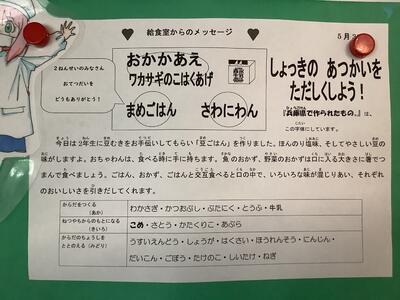 ♥ 給食室からのメッセージ ♥
5月
2ねんせいのみなさん
おてつだいを
どうもありがとう！
おかかあえ
ワカサギのこはくあげ
まめごはん さわにわん
しょっきの あつかいを
ただしくしよう！
『兵庫県で作られたもの。』は、
この字体にしています。
今日は2年生に豆むきをお手伝いしてもらい「豆ごはん」を作りました。ほんのり塩味、そしてやさしい豆の
味がしますよ。おちゃわんは、食べる時に手に持ちます。魚のおかず、野菜のおかずは口に入る大きさに箸でつ
まんで食べましょう。ごはん、おかず、ごはんと交互食べすると口の中で、いろいろな味が混じりあい、それぞれ
のおいしいさを引きだしてくれます。
からだをつくる
（あか）
わかさぎ・かつおぶし・ぶたにく・とうふ・牛乳
ねつやちからのもとになる
（きいろ）
こめ・さとう・かたくりこ・あぶら
からだのちょうしを
ととのえる（みどり）
うすいえんどう・しょうが・はくさい・ほうれんそう・にんじん・
だいこん・ごぼう・たけのこ・しいたけ・ねぎ